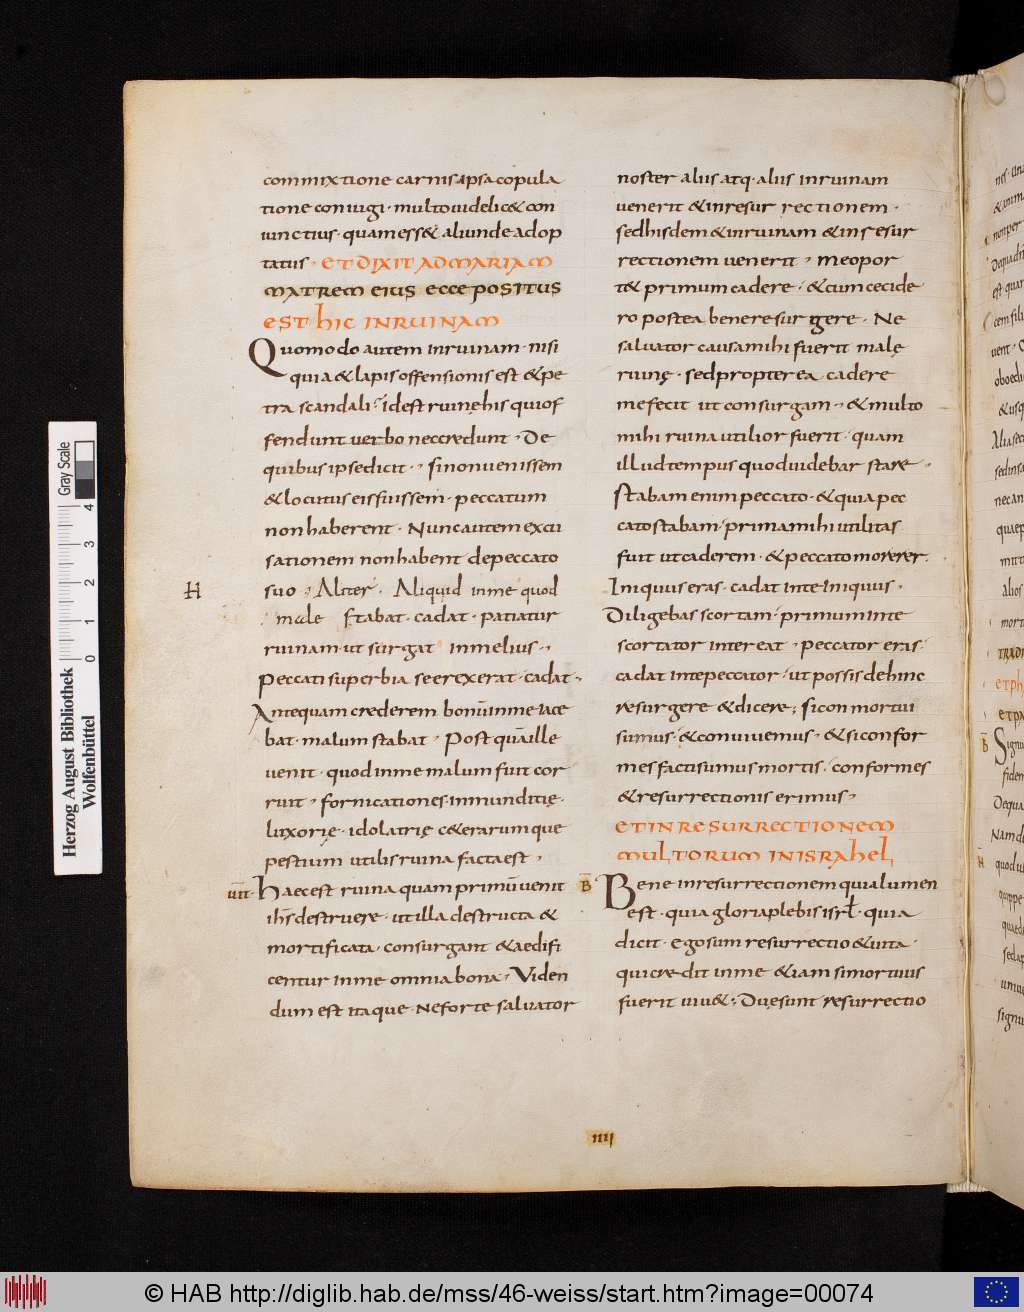 commixtione carnis ipsa copula
tione coniugi · multo uidelic& con
iunctius · quam ess& aliunde adop
tatus · ET DIXIT AD MARIAM
MATREM EIUS ECCE POSITUS
EST HIC IN RUINAM
Quomodo autem in ruinam · nisi
quia & lapis offensionis est & pe
tra scandali · idest ruinę his qui of
fendunt uerbo nec credunt · De
quibus ipse dicit · si non uenissem
& locutus eis fuissem · peccatum
non haberent · Nunc autem excu
sationem non habent de peccato
H
suo · Aliter · Aliquid in me quod
male stabat · cadat · patiatur
ruinam ut surgat in melius ·
Peccati superbia se erexerat · cadat ·
Antequam crederem bonū in me iace
bat · malum stabat · Post quā ille
uenit · quod in me malum fuit cor
ruit · fornicationes inmunditię ·
luxorię · idolatrię c&erarumque
pestium utilis ruina facta est ·
Haec est ruina quam primū uenit
ihs̄ destruere · ut illa destructa &
mortificata · consurgant & aedifi
centur in me omnia bona · Viden
dum est itaque · Ne forte saluator
noster aliis atq · aliis in ruinam
uenerit & in resurrectionem ·
sed hisdem & in ruinam & in resur
rectionem uenerit · me opor
t& primum cadere · & cum cecide
ro postea bene resurgere · Ne
saluator causa mihi fuerit malę
ruinę · sed propterea cadere
me fecit ut consurgam · & multo
mihi ruina utilior fuerit · quam
illud tempus quod uidebar stare ·
Stabam enim peccato · & quia pec
cato stabam · prima mihi utilitas
fuit ut caderem · & peccato morerer ·
Iniquus eras · cadat in te iniquus ·
Diligebas scortam · primum in te
scortator intereat · peccator eras ·
cadat in te peccator · ut possis dehinc
resurgere & dicere ; si conmortui
sumus · & conuiuemus · & si confor
mes facti sumus mortis · conformes
& resurrectionis erimus ·
ET IN RESURRECTIONEM
MULTORUM IN ISRAHEL
B
Bene in resurrectionem quia lumen
est · quia gloria plebis isrł · quia
dicit · ego sum resurrectio & uita ·
qui credit in me & iam si mortuus
fuerit uiu& · Duę sunt resurrectio
IIII
Herzog August Bibliothek
Wolfenbüttel
0 1 2 3 4
Gray Scale
© HAB http://diglib.hab.de/mss/46-weiss/start.htm?image=00074